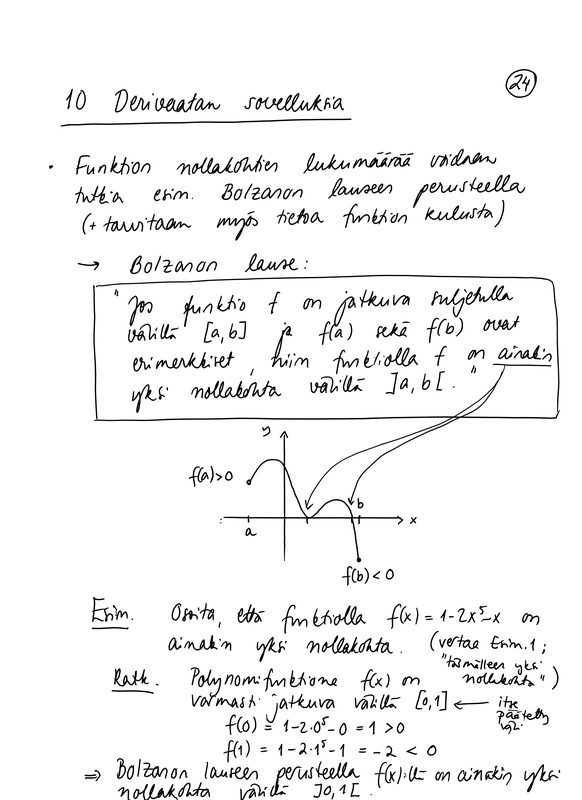 24
10 Derivaatan sovelluksia
• Funktion nollakohtien lukumäärää voidaan
tutkia esim. Bolzanon lauseen perusteella
(+ tarvitaan myös tietoa funktion kulusta)
→ Bolzanon lause:
"Jos funktio f on jatkuva suljetulla
välillä [a,b] ja f(a) sekä f(b) ovat
erimerkkiset, niin funktiolla f on ainakin
yksi nollakohta välillä ]a,b[."
y
f(a)>0
b
x
a
f(b)<0
Esim. Osoita, että funktiolla f(x) = 1-2x⁵-x on
ainakin yksi nollakohta. (vertaa Esim. 1;
"täsmälleen yksi
nollakohta")
Ratk. Polynomifunktiona f(x) on
varmasti jatkuva välillä [0,1] ← itse
päätelty
väli
f(0) = 1-2·0⁵-0 = 1 >0
f(1) = 1-2·1⁵-1 = -2 < 0
⇒ Bolzanon lauseen perusteella f(x):llä on ainakin yksi
nollakohta välillä ]0,1[.